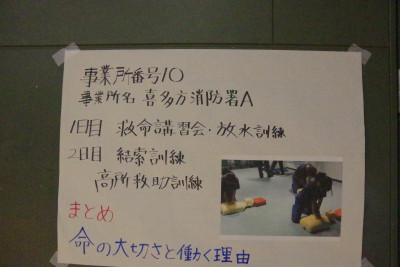 事業所番号10
事業所名 喜多方消防署A
1日目 救命講習会・放水訓練
2日目 結索訓練
高所救助訓練
まとめ
命の大切さと働く理由